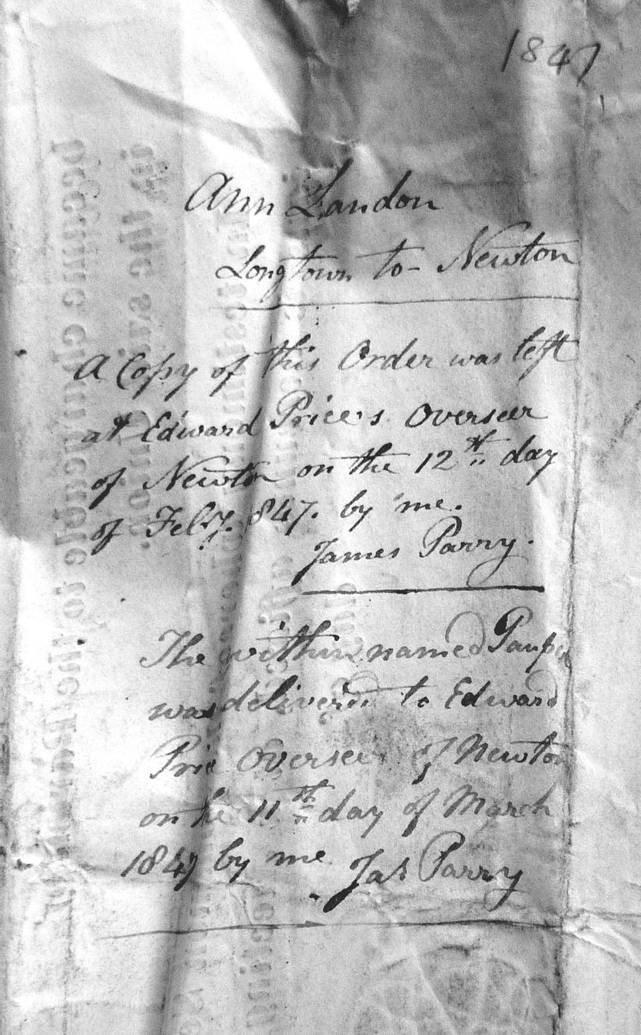 1847
Ann Landon
Longtown to - Newton
A Copy of this Order was left
at Edward Price's Overseer
of Newton on the 12th day
of Feby. 1847. by me.
James Parry.
The within named Pauper
was delivered to Edward
Price Overseer of Newton
on the 11th day of March
1847 by me Jas Parry